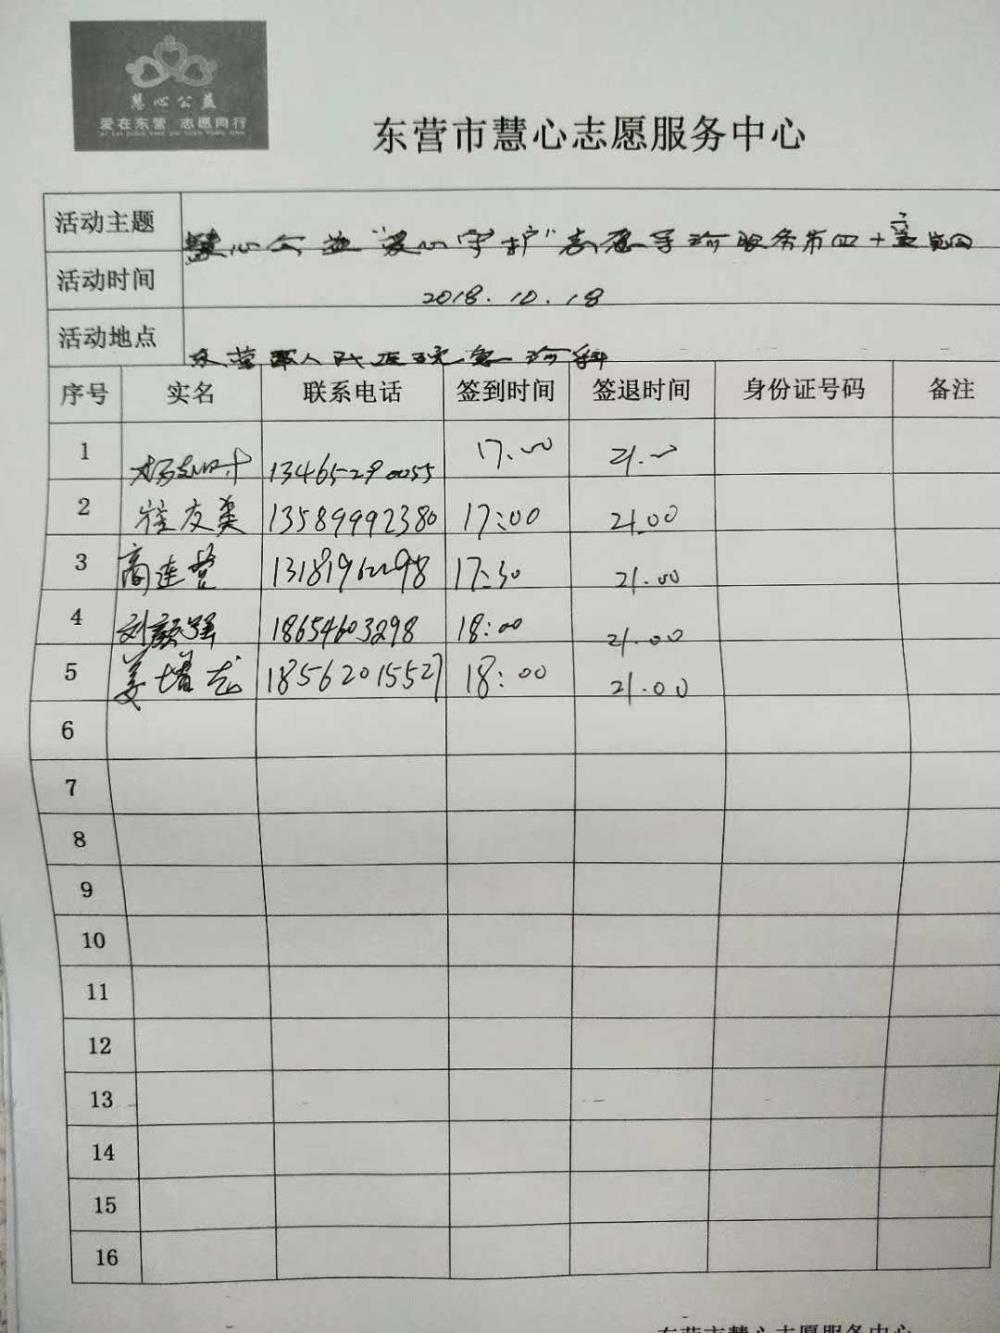 慧心公益
爱在东营 志愿同行
东营市慧心志愿服务中心
活动主题 慧心公益"爱心守护"志愿导诊服务第四十
活动时间 2018.10.18
活动地点 东营区人民医院急诊科
序号 实名 联系电话 签到时间 签退时间 身份证号码 备注
1 13465290055 17.00 21.00
2 崔友英 13589992380 17:00 21.00
3 高连营 13181962298 17:30 21.00
4 刘颜强 18654603298 18:00 21.00
5 姜增志 18562015527 18:00 21.00
6
7
8
9
10
11
12
13
14
15
16
东营市慧心志愿服务中心